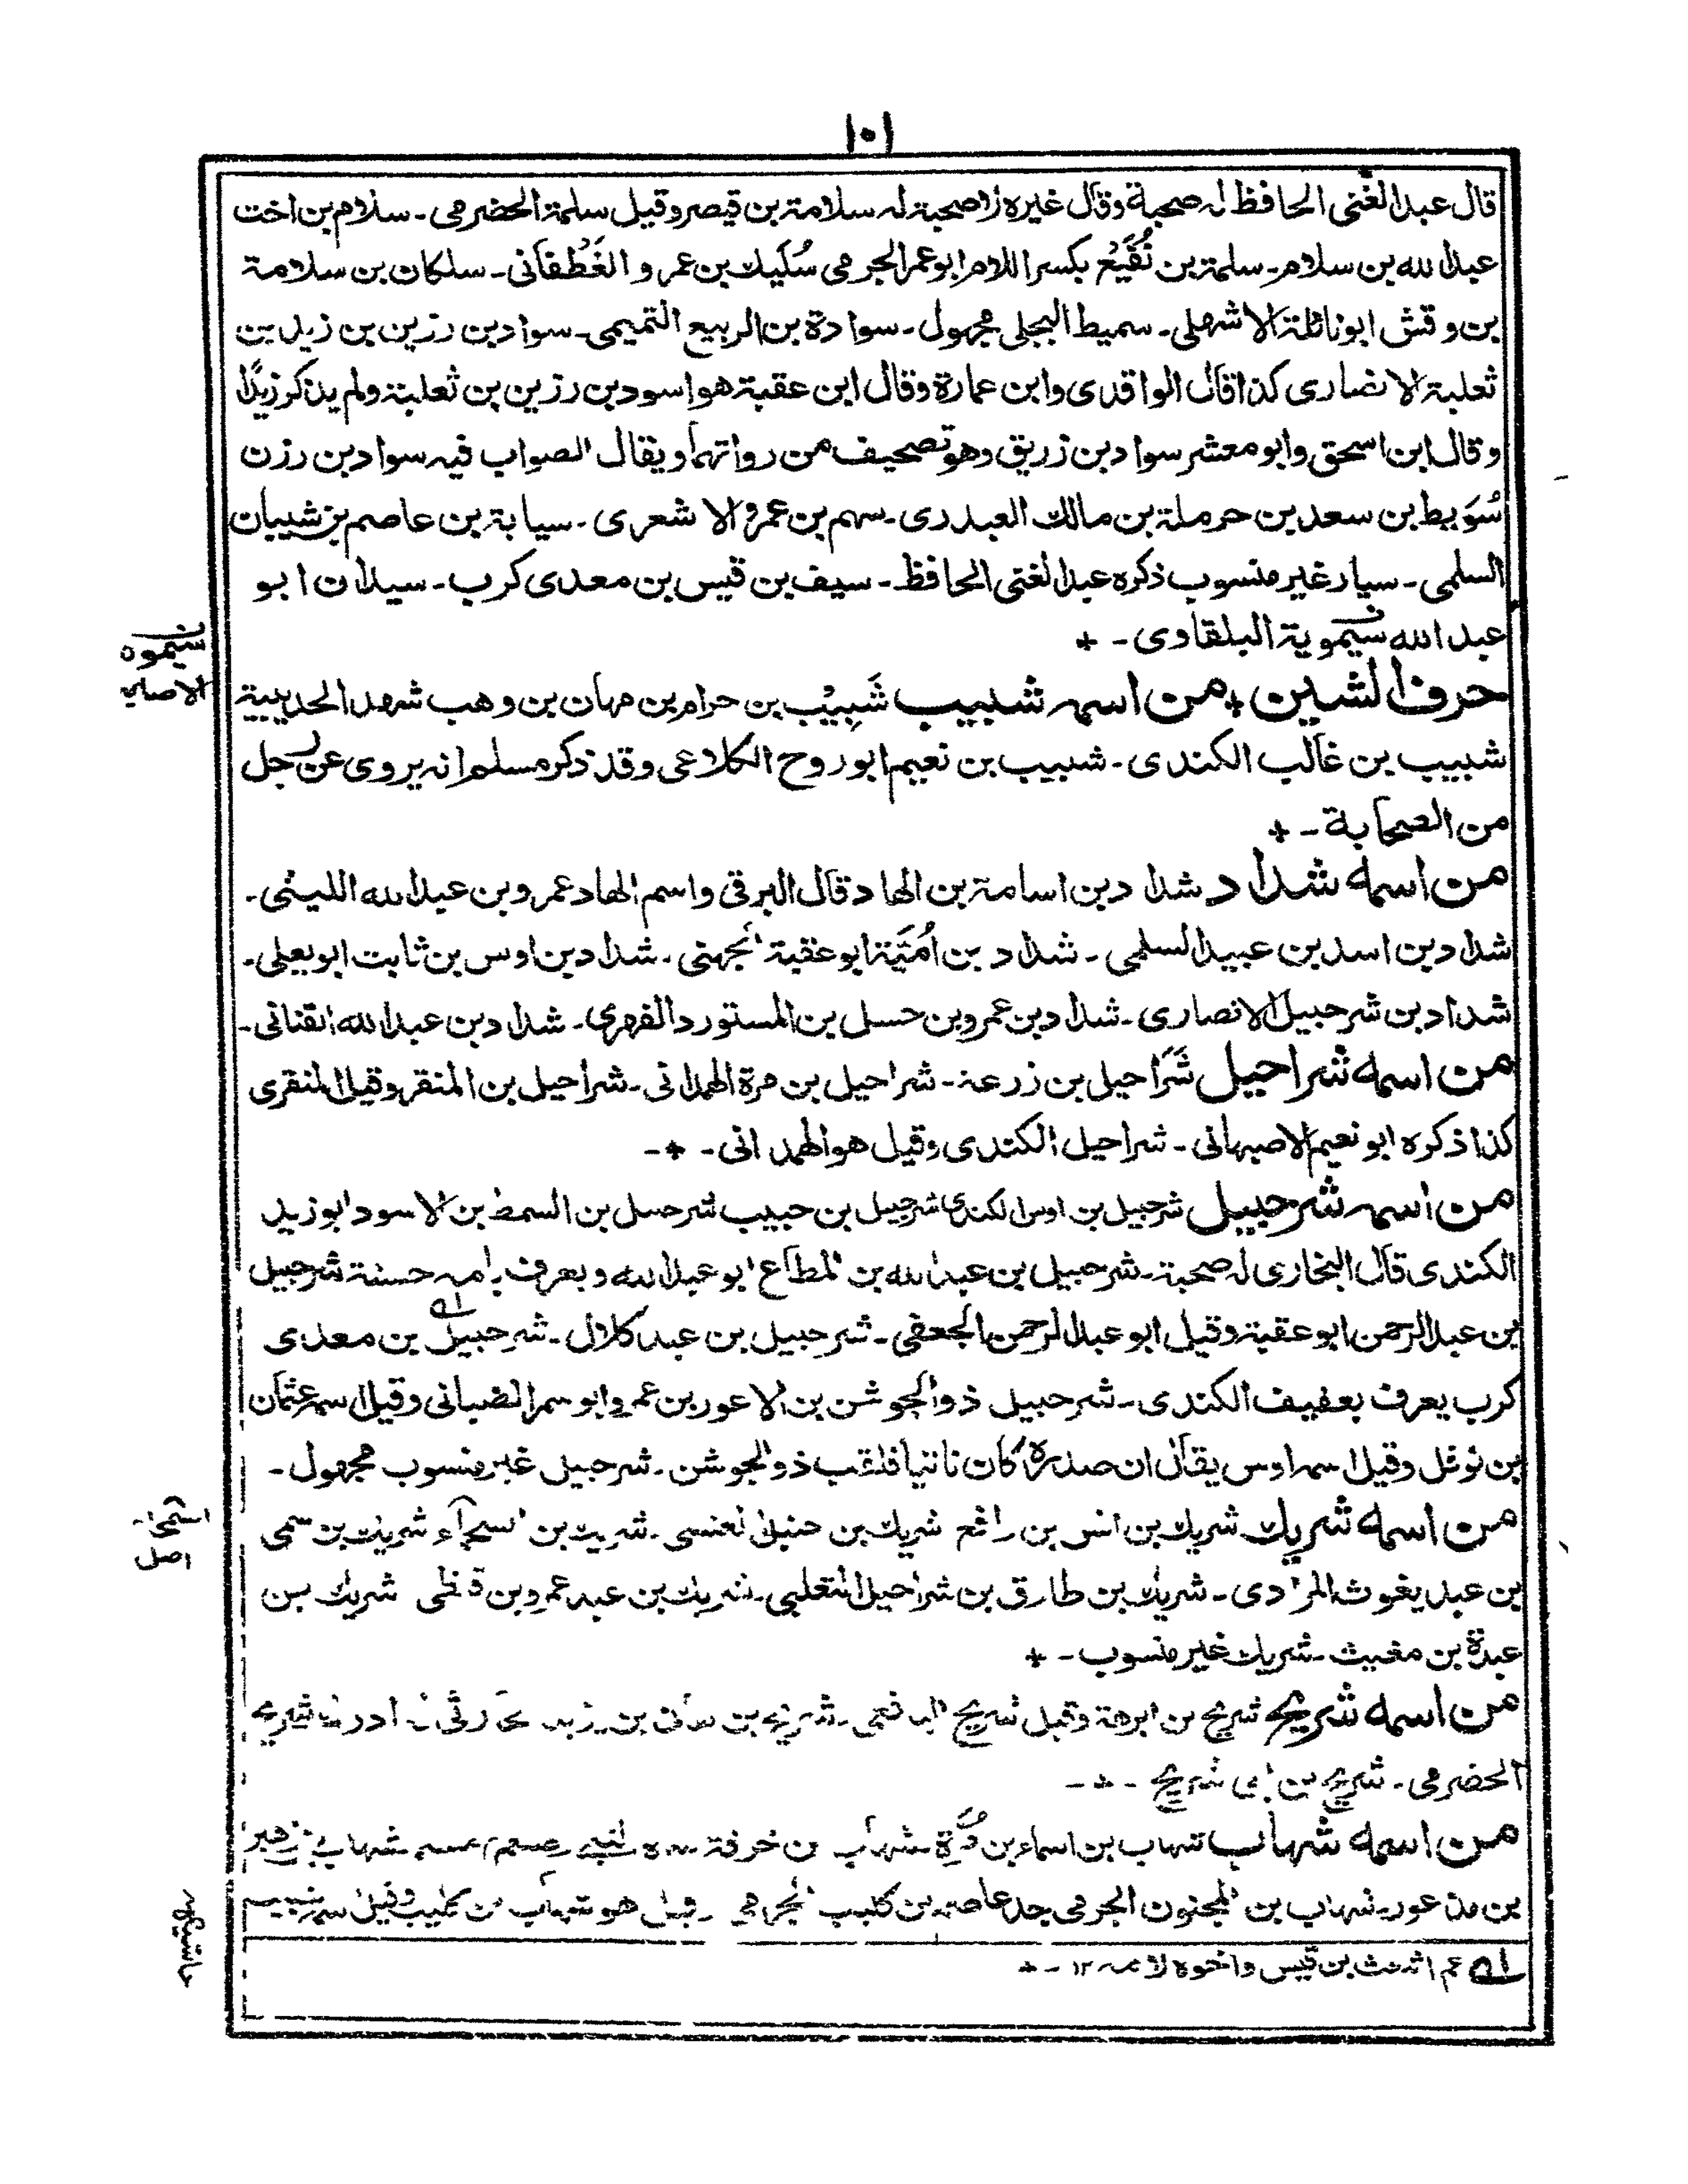 ١٠١
قال عبد الغنى الحافظ له صحبة وقال غيره لا صحبة له سلامة بن قيصر وقيل سلمة الحضرمى ـ سلام بن اخت
عبد الله بن سلام ـ سلمة بن نُفَيْع بكسر اللام ابو عمر الجرمى سُلَيك بن عمرو الغَطْفانى ـ سلكان بن سلامة
بن وقش ابو نائلة الاشهلى ـ سميط البجلى مجهول ـ سوادة بن الربيع التميمى ـ سواد بن رزين بن زيد بن
ثعلبة الانصارى كذا قال الواقدى وابن عمارة وقال ابن عقبة هو اسود بن رزين بن ثعلبة ولم يذكر زيدًا
وقال ابن اسحق وابو معشر سواد بن زريق وهو تصحيف من رواتهما ويقال الصواب فيه سواد بن رزن
سُوَيبط بن سعد بن حرملة بن مالك العبدرى ـ سهم بن عمرو الاشعرى ـ سيابة بن عاصم بن شيبان
السلمى ـ سيار غير منسوب ذكره عبد الغنى الحافظ ـ سيف بن قيس بن معدى كرب ـ سيدان ابو
عبد الله سيموية البلقاوى ـ +
سيموه
الاصلى
حرف الشين + من اسمه شبيب شَبِيْب بن حرام بن مهان بن وهب شهد الحديبية
شبيب بن غالب الكندى ـ شبيب بن نعيم ابو روح الكلاعى وقد ذكر مسلم انه يروى عن رجل
من الصحابة ـ +
من اسمه شداد شداد بن اسامة بن الهاد قال البرقى واسم الهاد عمرو بن عبد الله الليثى ـ
شداد بن اسد بن عبيد السلمى ـ شداد بن اُمَيَّة ابو عقبة الجهنى ـ شداد بن اوس بن ثابت ابو يعلى ـ
شداد بن شرحبيل الانصارى ـ شداد بن عمرو بن حسل بن المستورد الفهرى ـ شداد بن عبد الله القنانى ـ
من اسمه شراحيل شَرَاحيل بن زرعة ـ شراحيل بن مرة الهمدانى ـ شراحيل بن المنقر وقيل المنقرى
كذا ذكره ابو نعيم الاصبهانى ـ شراحيل الكندى وقيل هو الهمدانى ـ + ـ
من اسمه شرحبيل شرحبيل بن اوس الكندى شرحبيل بن حبيب شرحبيل بن السمط بن الاسود ابو زيد
الكندى قال البخارى له صحبة ـ شرحبيل بن عبد الله بن المطاع ابو عبد الله ويعرف بامه حسنة شرحبيل
بن عبد الرحمن ابو عقبة وقيل ابو عبد الرحمن الجعفى ـ شرحبيل بن عبد كلال ـ شرحبيل له بن معدى
كرب يعرف بعفيف الكندى ـ شرحبيل ذو الجوشن بن الاعور بن عمرو ابو سمر الضبابى وقيل اسمه عثمان
بن نوفل وقيل اسمه اوس يقال ان صدره كان ناتيا فلقب ذو الجوشن ـ شرحبيل غير منسوب مجهول ـ
من اسمه شريك شريك بن انس بن رافع شريك بن حنبل العبسى ـ شريك بن السحآء شريك بن سمى
اصل
بن عبد يغوث المرادى ـ شريك بن طارق بن شراحيل الثعلبى ـ شريك بن عبد عمرو بن قظى شريك بن
عبدة بن مغيث ـ شريك غير منسوب ـ +
من اسمه شريح شريح بن ابرهة وقيل شريح اليافعى ـ شريح بن هانى بن يزيد شريح
الحضرمى ـ شريح بن ابى شريح ـ + ـ
من اسمه شهاب شهاب بن اسماء بن مُرَّة شهاب بن خرفة شهاب بن زهير
بن مذعور ـ شهاب بن المجنون الجرمى جد عاصم بن كليب الجرمى ـ قيل هو شهاب بن كليب وقيل اسمه شبيب
حاشية
له عم اشعث بن قيس واخوه لامه ١٢ ـ +